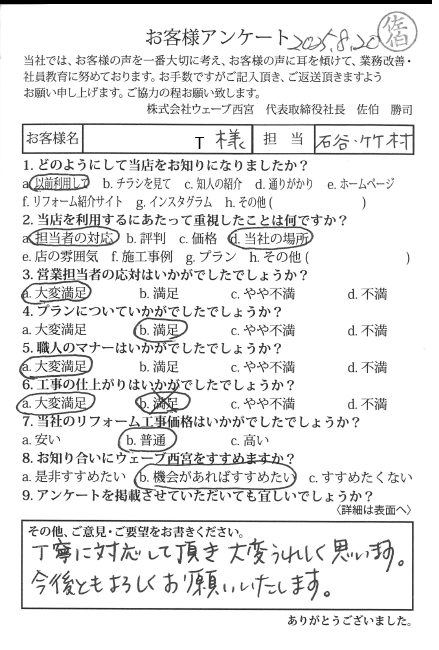 お客様アンケート 2025.8.20 佐伯
当社では、お客様の声を一番大切に考え、お客様の声に耳を傾けて、業務改善・
社員教育に努めております。お手数ですがご記入頂き、ご返送頂きますよう
お願い申し上げます。ご協力の程お願い致します。
株式会社ウェーブ西宮 代表取締役社長 佐伯 勝司
お客様名 T 様 担当 石谷・竹村
1. どのようにして当店をお知りになりましたか?
a. 以前利用して b. チラシを見て c. 知人の紹介 d. 通りがかり e. ホームページ
f. リフォーム紹介サイト g. インスタグラム h. その他 ( )
2. 当店を利用するにあたって重視したことは何ですか?
a. 担当者の対応 b. 評判 c. 価格 d. 当社の場所
e. 店の雰囲気 f. 施工事例 g. プラン h. その他 ( )
3. 営業担当者の応対はいかがでしたでしょうか?
a. 大変満足 b. 満足 c. やや不満 d. 不満
4. プランについていかがでしたでしょうか?
a. 大変満足 b. 満足 c. やや不満 d. 不満
5. 職人のマナーはいかがでしたでしょうか?
a. 大変満足 b. 満足 c. やや不満 d. 不満
6. 工事の仕上がりはいかがでしたでしょうか?
a. 大変満足 b. 満足 c. やや不満 d. 不満
7. 当社のリフォーム工事価格はいかがでしたでしょうか?
a. 安い b. 普通 c. 高い
8. お知り合いにウェーブ西宮をすすめますか?
a. 是非すすめたい b. 機会があればすすめたい c. すすめたくない
9. アンケートを掲載させていただいても宜しいでしょうか?
〈詳細は表面へ〉
その他、ご意見・ご要望をお書きください。
丁寧に対応して頂き大変うれしく思います。
今後ともよろしくお願いいたします。
ありがとうございました。